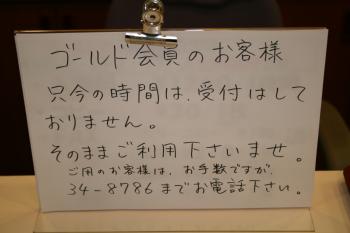 ゴールド会員のお客様
只今の時間は、受付はして
おりません。
そのままご利用下さいませ。
ご用のお客様は、お手数ですが
34-8786までお電話下さい。